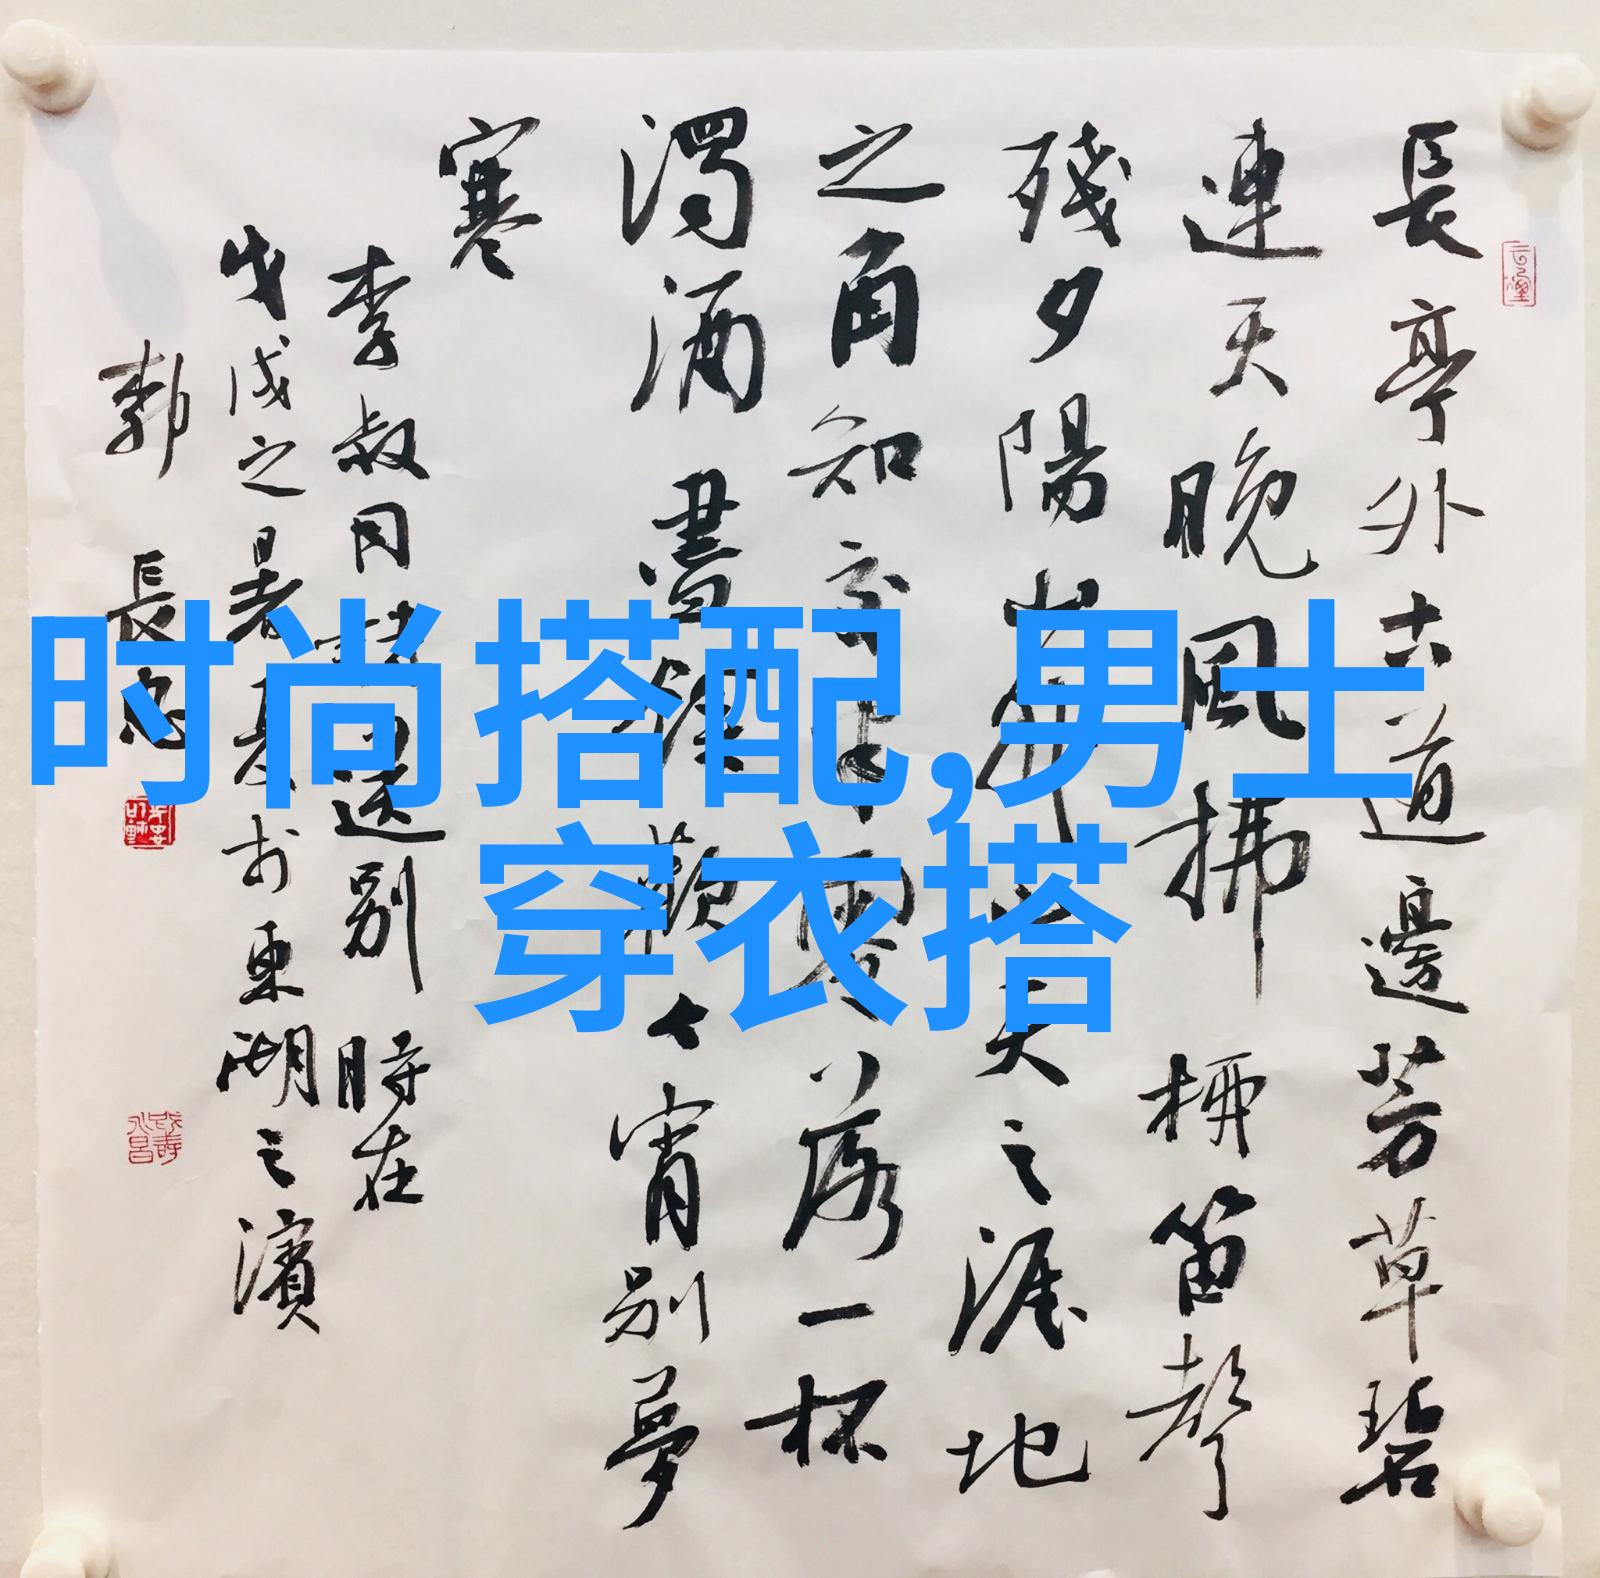 長亭外古道邊芳草碧
連天晚風拂柳笛聲
殘夕陽山外山天之涯地
之角知交半零落一杯
濁酒盡餘歡今宵別夢
寒
李叔同詩送别 時在
戊戌之暑夏於東湖之濱
郭長忠
时尚搭配,男士
穿衣搭